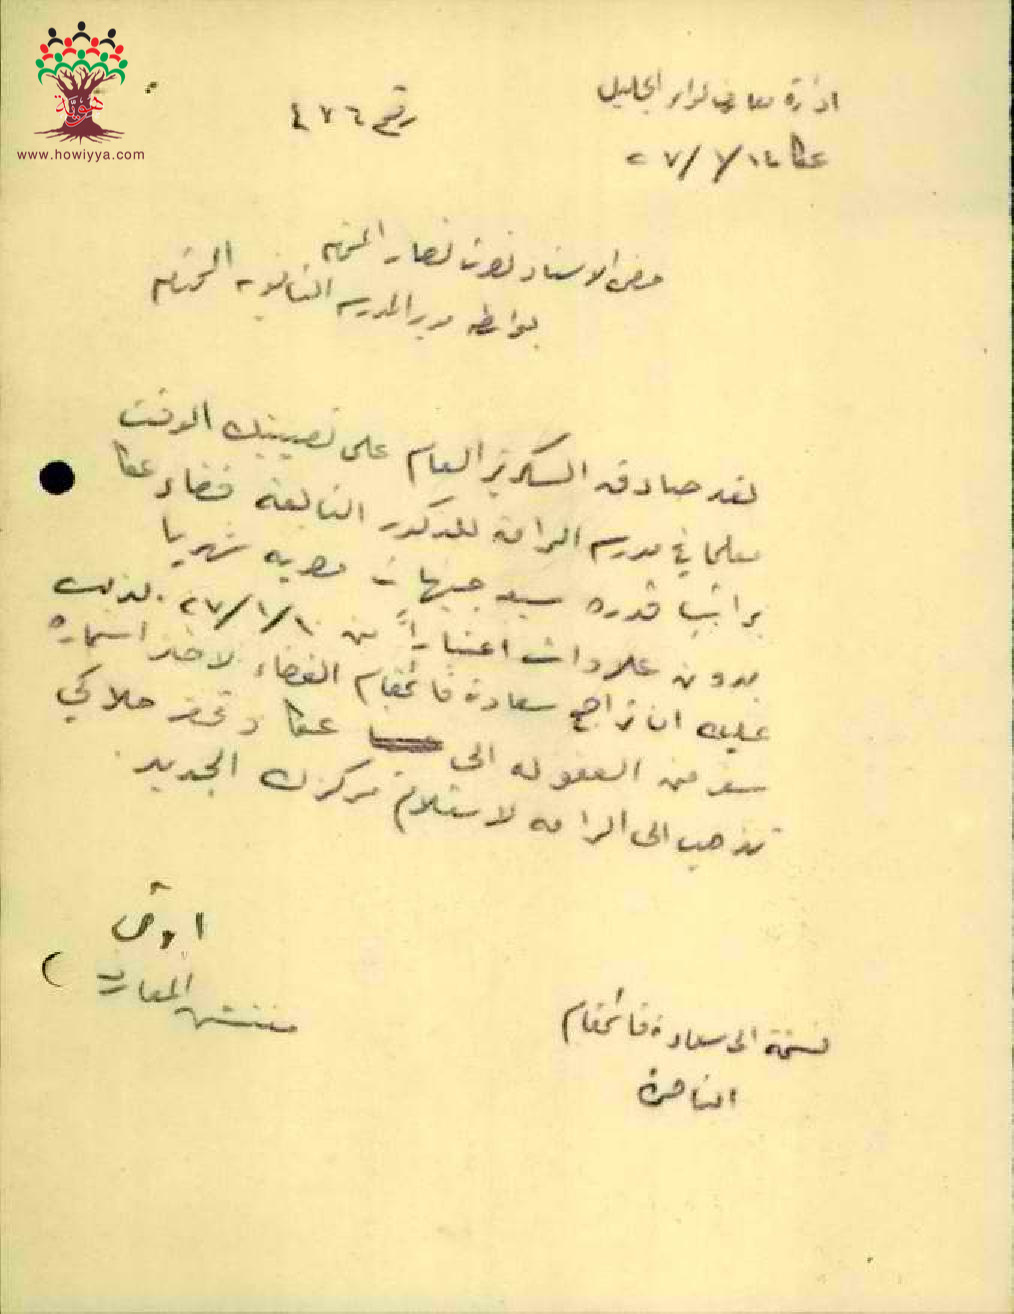 هوية
www.howiyya.com
ادارة معارف لواء الجليل
رقم ٤٧٦
عكا
حضرة الاستاذ نصار المحترم
بواسطة مدير المدرسة الثانوية المحترم
لقد صادق السكرتير العام على تعيينك الوقت
معلما في مدرسة الرامة للذكور التابعة قضاء عكا
براتب قدره سبع جنيهات مصرية شهريا
بدون علاوات اعتباراً من ٢٧/١/١٠ . لذلك
عليك ان تراجع سعادة قائمقام القضاء لاخذ استمارة
سفر من العفولة الى عكا وتحضر حلاكي
تذهب الى الرامة لاستلام مركزك الجديد .
مفتش المعارف
نسخة الى سعادة قائمقام
الناصرة